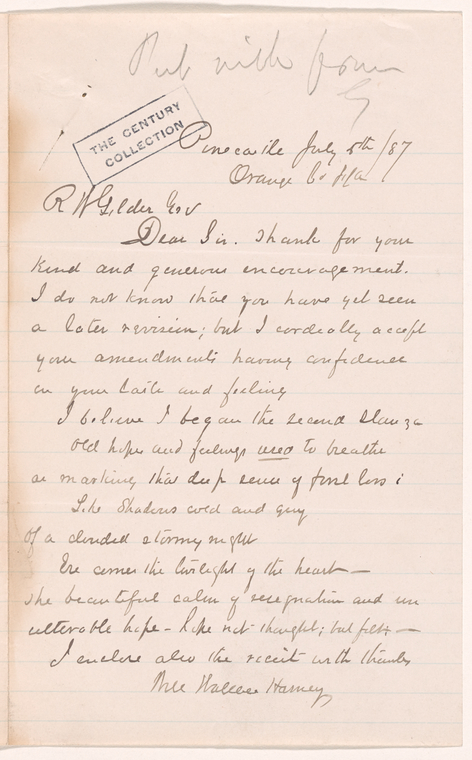 Put with poem
THE CENTURY
COLLECTION
Pinecastle July 5th /87
Orange Co Fla
R W Gilder Esq
Dear Sir. Thank for your
kind and generous encouragement.
I do not know that you have yet seen
a later revision; but I cordially accept
your amendments having confidence
in your taste and feeling
I believe I began the second stanza
Old hopes and feelings used to breathe
as marking that deep sense of first loss
Like Shadows cold and grey
Of a clouded stormy night
Ere comes the twilight of the heart—
the beautiful calm of resignation and un
utterable hope - hope not thought; but felt—
I enclose also the receipt with thanks
Will Wallace Harney